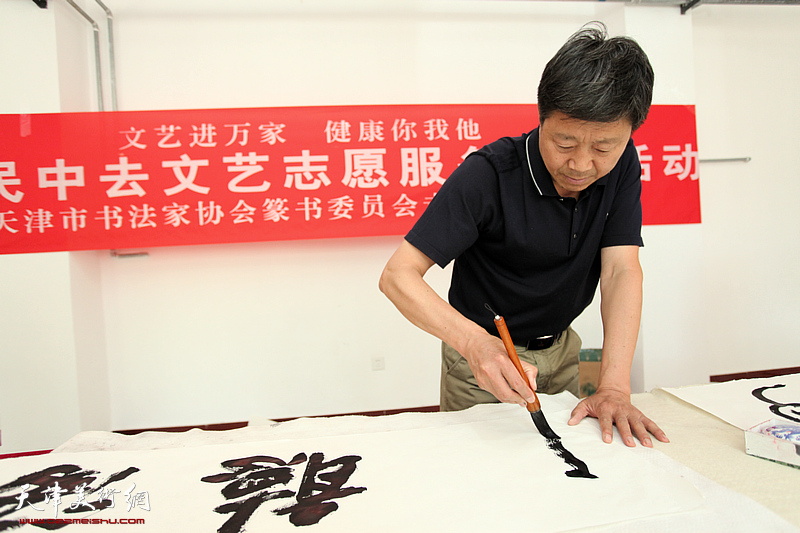 文艺进万家 健康你我他
民中去文艺志愿服 活动
天津市书法家协会篆书委员会
天津美術網
www.022meishu.com